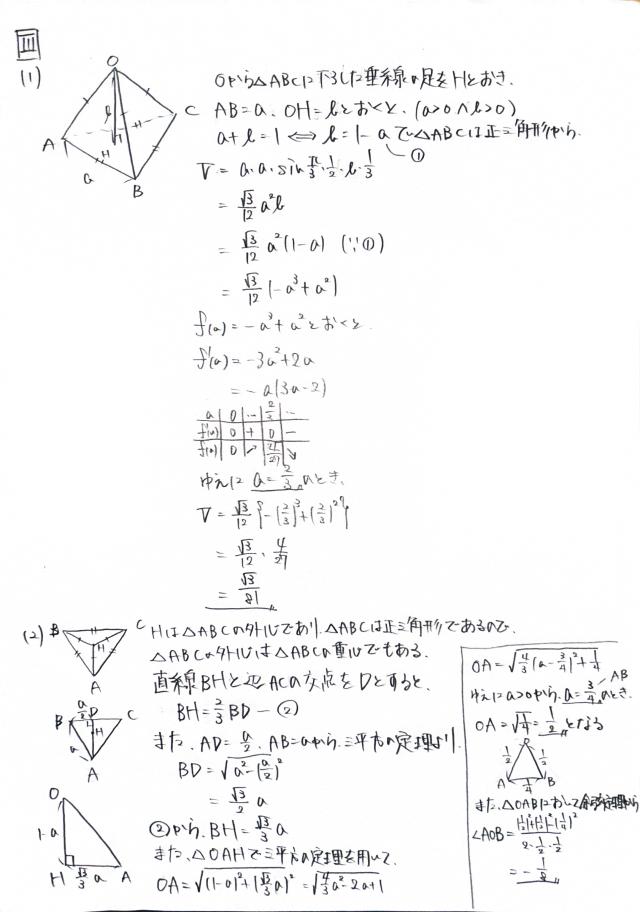 III
(1)
Oから△ABCに下ろした垂線の足をHとおき、
AB=a、OH=bとおくと、(a>0∧b>0)
a+b=1⇔b=1-aで△ABCは正三角形から
①
V=a・a・sin π/3・1/2・b・1/3
=√3/12 a²b
=√3/12 a²(1-a) (∵①)
=√3/12 (-a³+a²)
f(a)=-a³+a²とおくと
f'(a)=-3a²+2a
=-a(3a-2)
a 0 … 2/3 …
f'(a) 0 + 0 -
f(a) 0 ↗ ↘
ゆえに a=2/3のとき、
V=√3/12{-(2/3)³+(2/3)²}
=√3/12・4/27
=√3/81
O
A
B
C
H
a
b
(2)
Hは△ABCの外心であり、△ABCは正三角形であるので、
△ABCの外心は△ABCの重心でもある。
直線BHと辺ACの交点をDとすると、
BH=2/3 BD-②
また、AD=a/2、AB=aから、三平方の定理より、
BD=√(a²-(a/2)²)
=√3/2 a
②から、BH=√3/3 a
また、△OAHで三平方の定理を用いて、
OA=√((1-a)²+(√3/3 a)²)=√(4/3 a²-2a+1)
B
C
A
a/2
D
B
C
H
a
A
O
1-a
H
√3/3 a
A
OA=√(4/3(a-3/4)²+1/4)
AB
ゆえにa>0から、a=3/4のとき、
OA=√(1/4)=1/2となる
O
1/2
1/2
A
1/4
B
また、△OABにおいて余弦定理から
∠AOB=((1/2)²+(1/2)²-(1/4)²)/(2・1/2・1/2)
=-1/8